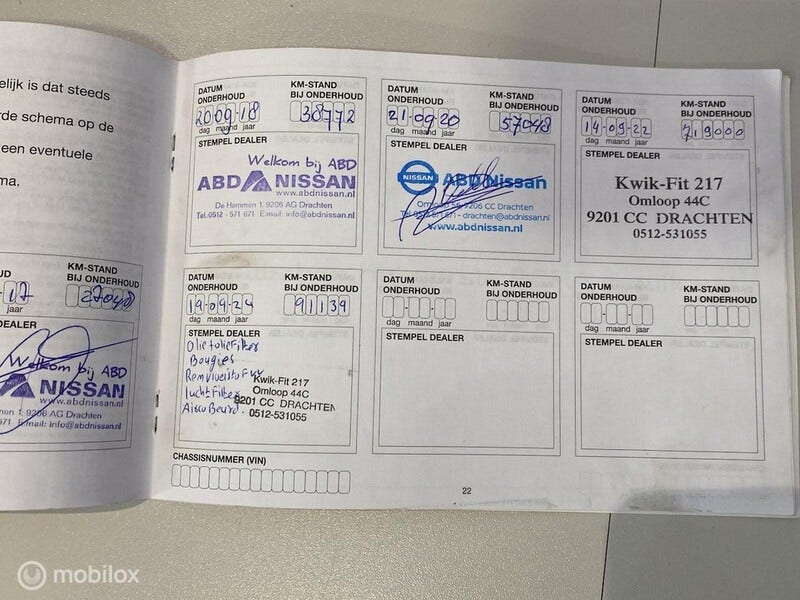 elijk is dat steeds
rde schema op de
een eventuele
ma.
UD
KM-STAND
BIJ ONDERHOUD
-17
27048
jaar
DEALER
Welkom bij ABD
NISSAN
www.abdnissan.nl
nen 1, 9206 AG Drachten
671 E.mail: info@abdnissan.nl
DATUM
ONDERHOUD
KM-STAND
BIJ ONDERHOUD
20-09-18
38772
dag maand jaar
STEMPEL DEALER
Welkom bij ABD
ABD NISSAN
www.abdnissan.nl
De Hemmen 1, 9206 AG Drachten
Tel.:0512 - 571 671 E.mail: info@abdnissan.nl
DATUM
ONDERHOUD
KM-STAND
BIJ ONDERHOUD
21-09-20
57048
dag maand jaar
STEMPEL DEALER
NISSAN ABD Nissan
9206 CC Drachten
Tel 0512 - 571 671 - drachten@abdnissan.nl
www.abdnissan.nl
DATUM
ONDERHOUD
KM-STAND
BIJ ONDERHOUD
14-09-22
79000
dag maand jaar
STEMPEL DEALER
Kwik-Fit 217
Omloop 44C
9201 CC DRACHTEN
0512-531055
DATUM
ONDERHOUD
KM-STAND
BIJ ONDERHOUD
19-09-24
91139
dag maand jaar
STEMPEL DEALER
Olie+oliefilter
Bougies
Remvloeistof
Luchtfilter
Airco Beurd.
Kwik-Fit 217
Omloop 44C
9201 CC DRACHTEN
0512-531055
DATUM
ONDERHOUD
KM-STAND
BIJ ONDERHOUD
dag maand jaar
STEMPEL DEALER
DATUM
ONDERHOUD
KM-STAND
BIJ ONDERHOUD
dag maand jaar
STEMPEL DEALER
CHASSISNUMMER (VIN)
22
mobilox